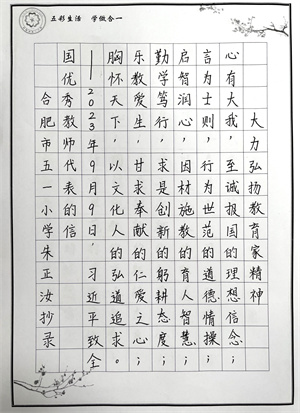 五彩生活 学做合一
大力弘扬教育家精神
心有大我，至诚报国的理想信念；
言为士则，行为世范的道德情操；
启智润心，因材施教的育人智慧；
勤学笃行，求是创新的躬耕态度；
乐教爱生，甘于奉献的仁爱之心；
胸怀天下，以文化人的弘道追求。
——2023年9月9日，习近平致全
国优秀教师代表的信
合肥市五一小学朱正汝抄录